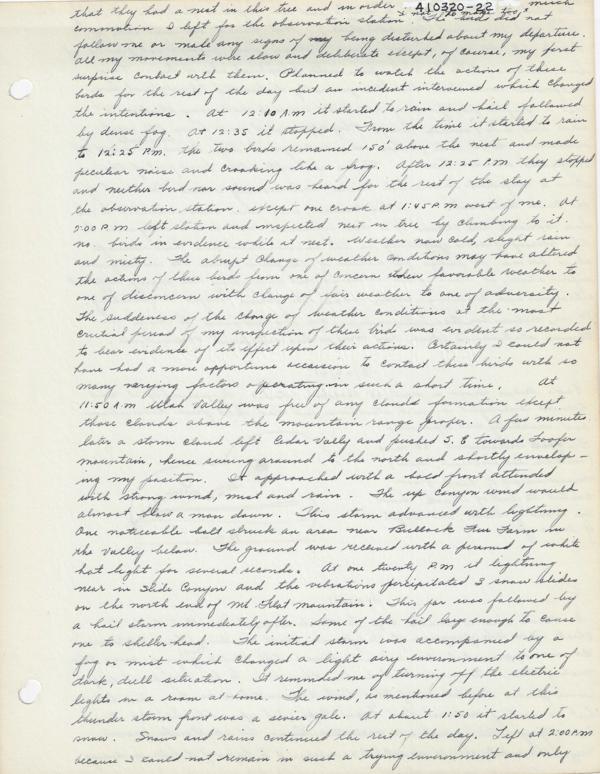 that they had a nest in this tree and in order 410320-22 much
commotion I left for the observation station. The birds did not
follow me or make any signs of my being disturbed about my departure.
All my movements were slow and deliberate except, of course, my first
surprise contact with them. Planned to watch the actions of these
birds for the rest of the day but an incident intervened which changed
the intentions. At 12:10 A.M it started to rain and hail followed
by dense fog. At 12:35 it stopped. From the time it started to rain
to 12:25 P.M. the two birds remained 150' above the nest and made
peculiar noise and croaking like a frog. After 12:25 P.M they stopped
and neither bird nor sound was heard for the rest of the stay at
the observation station. except one croak at 1:45 P.M west of me. At
2:00 P.M left station and inspected nest in tree by climbing to it.
no birds in evidence while at nest. Weather now cold, slight rain
and misty. The abrupt change of weather conditions may have altered
the actions of these birds from one of concern when favorable weather to
one of disconcern with change of fair weather to one of adversity.
The suddeness of the change of weather conditions at the most
critical period of my inspection of these birds was evident so recorded
to bear evidence of its effect upon their actions. Certainly I could not
have had a more opportune occasion to contact these birds with so
many varying factors operating in such a short time. At
11:50 A.M Utah Valley was free of any clouds formation except
those clouds above the mountain range proper. A few minutes
later a storm cloud left Cedar Vally and pushed S.E towards
mountain, hence swung around to the north and shortly envelop-
ing my position. It approached with a bold front attended
with strong wind, mist and rain. The up Canyon wind would
almost blow a man down. This storm advanced with lightning.
One noticeable bolt struck an area near Bullock Farm in
the Valley below. The ground was received with a pyramid of white
hot light for several seconds. At one twenty P.M it lightning
near in Slide Canyon and the vibrations percipitated 3 snow slides
on the north end of Mt. Flat mountain. This far was followed by
a hail storm immediately after. Some of the hail large enough to cause
one to shelter head. The initial storm was accompanied by a
fog or mist which changed a light airy environment to one of
dark, dull situation. It reminded me of turning off the electric
lights in a room at home. The wind, as mentioned before at this
thunder storm front was a sever gale. At about 1:50 it started to
snow. Snows and rains continued the rest of the day. Left at 2:00 P.M
because I could not remain in such a trying environment and only